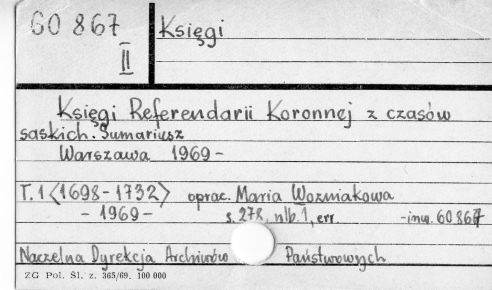 60 867
II
Księgi
Księgi Referendarii Koronnej z czasów
saskich. Sumariusz
Warszawa 1969-
T. 1 <1698-1732> oprac. Maria Woźniakowa
- 1969- s. 278, nlb. 1, err. -inw. 60867
Naczelna Dyrekcja Archiwów Państwowych
ZG Pol. Śl. z. 365/69. 100 000